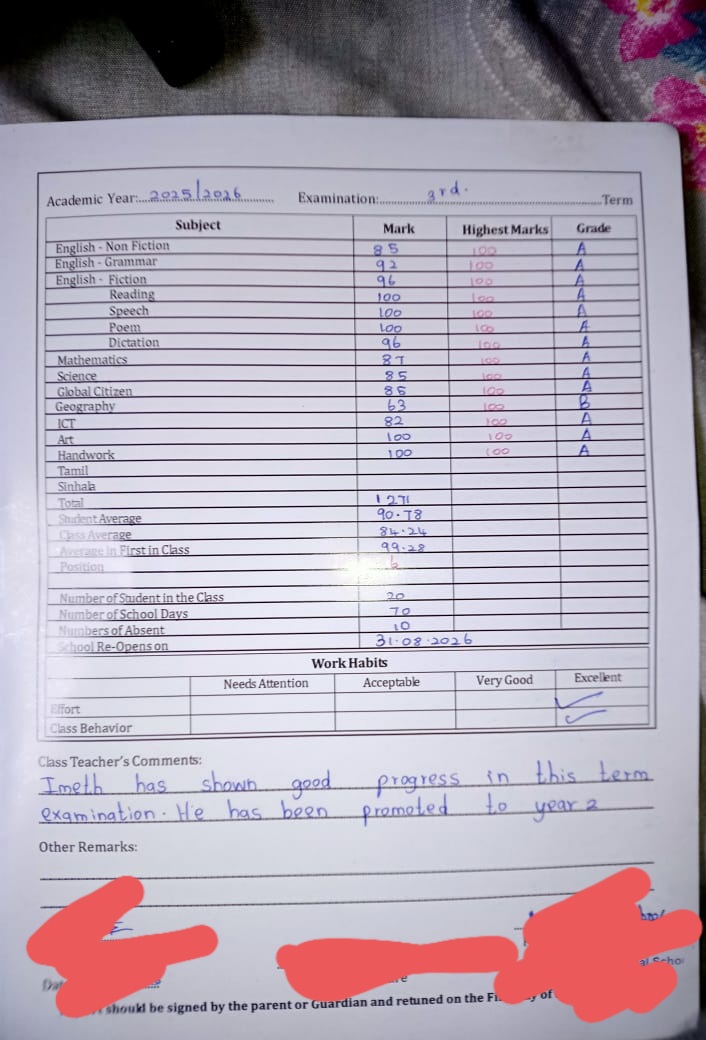 Academic Year:....2025/2026.... Examination:....3rd.....Term
Subject Mark Highest Marks Grade
English - Non Fiction 85 100 A
English - Grammar 92 100 A
English - Fiction 96 100 A
Reading 100 100 A
Speech 100 100 A
Poem 100 100 A
Dictation 96 100 A
Mathematics 87 100 A
Science 85 100 A
Global Citizen 85 100 A
Geography 63 100 B
ICT 82 100 A
Art 100 100 A
Handwork 100 100 A
Tamil
Sinhala
Total 1271
Student Average 90.78
Class Average 84.24
Average in First in Class 99.28
Position 6
Number of Student in the Class 20
Number of School Days 70
Numbers of Absent 10
School Re-Opens on 31.08.2026
Work Habits
Needs Attention Acceptable Very Good Excellent
Effort
Class Behavior
Class Teacher's Comments:
Imeth has shown good progress in this term
examination. He has been promoted to year 2
Other Remarks:
should be signed by the parent or Guardian and retuned on the of